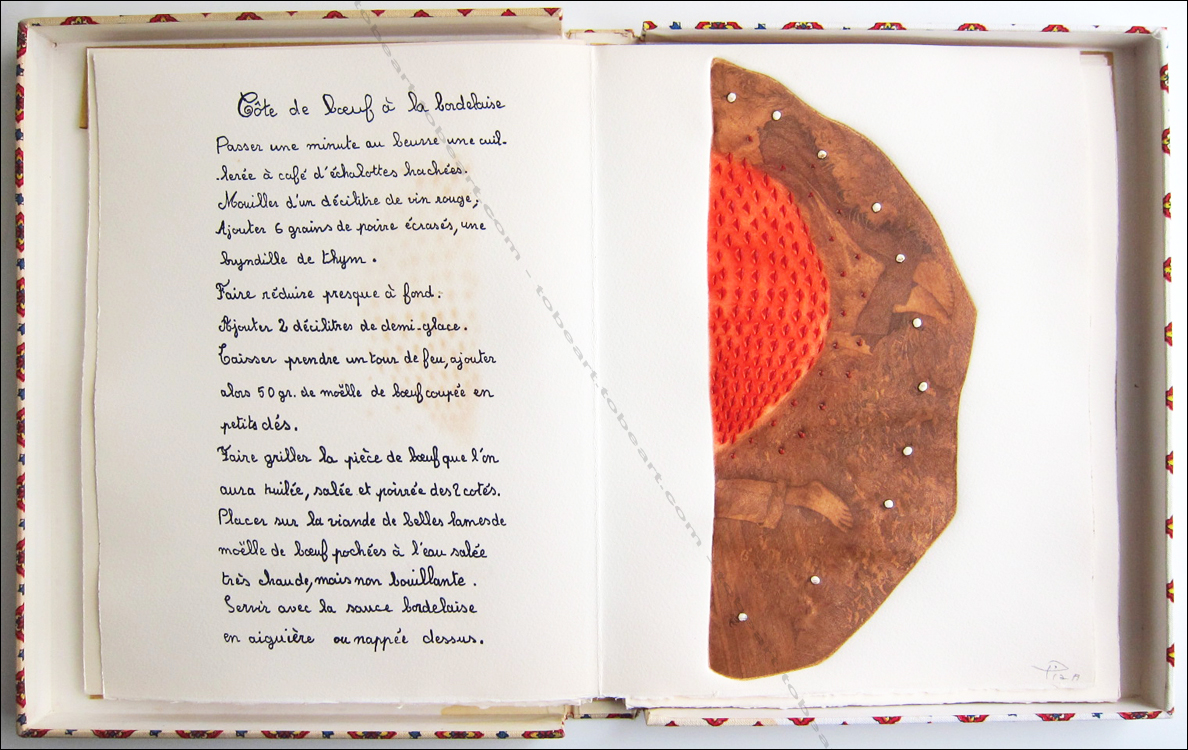 Côte de bœuf à la bordelaise
Passer une minute au beurre une cuil-
-lerée à café d'échalottes hachées.
Mouiller d'un décilitre de vin rouge;
Ajouter 6 grains de poivre écrasés, une
byndille de thym.
Faire réduire presque à fond.
Ajouter 2 décilitres de demi-glace.
Laisser prendre un tour de feu, ajouter
alors 50 gr. de moëlle de bœuf coupée en
petits dés.
Faire griller la pièce de bœuf que l'on
aura huilée, salée et poivrée des 2 cotés.
Placer sur la viande de belles lames de
moëlle de bœuf pochées à l'eau salée
très chaude, mais non bouillante.
Servir avec la sauce bordelaise
en aiguière ou nappée dessus.
tobeart.com - tobeart.com
tobeart.com - tobeart.com